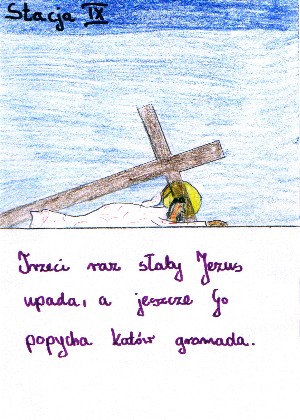 Stacja IX
Trzeci raz słaby Jezus
upada, a jeszcze Go
popycha katów gromada.